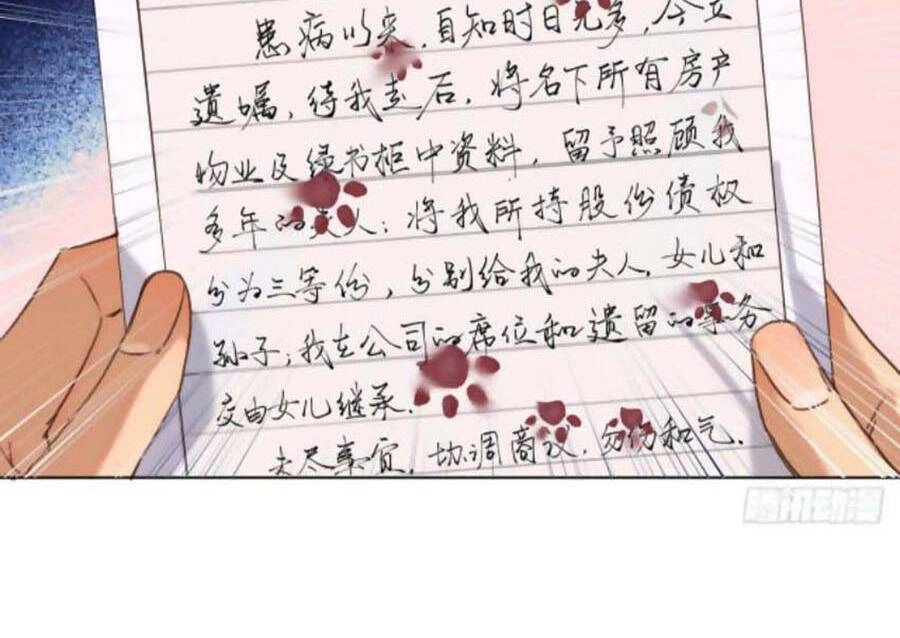 患病以来，自知时日无多，今立
遗嘱，待我走后，将名下所有房产
物业及绿书柜中资料，留予照顾我
多年的夫人；将我所持股份债权
分为三等份，分别给我的夫人，女儿和
孙子；我在公司的席位和遗留的事务
交由女儿继承．
未尽事宜，协调商议，勿伤和气．